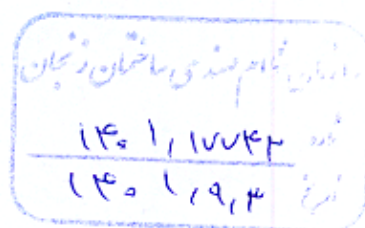 سازمان نظام مهندسی ساختمان زنجان
ورود ۱۴۰۱,۱۷۷۴۳
تاریخ ۱۴۰۱,۹,۳